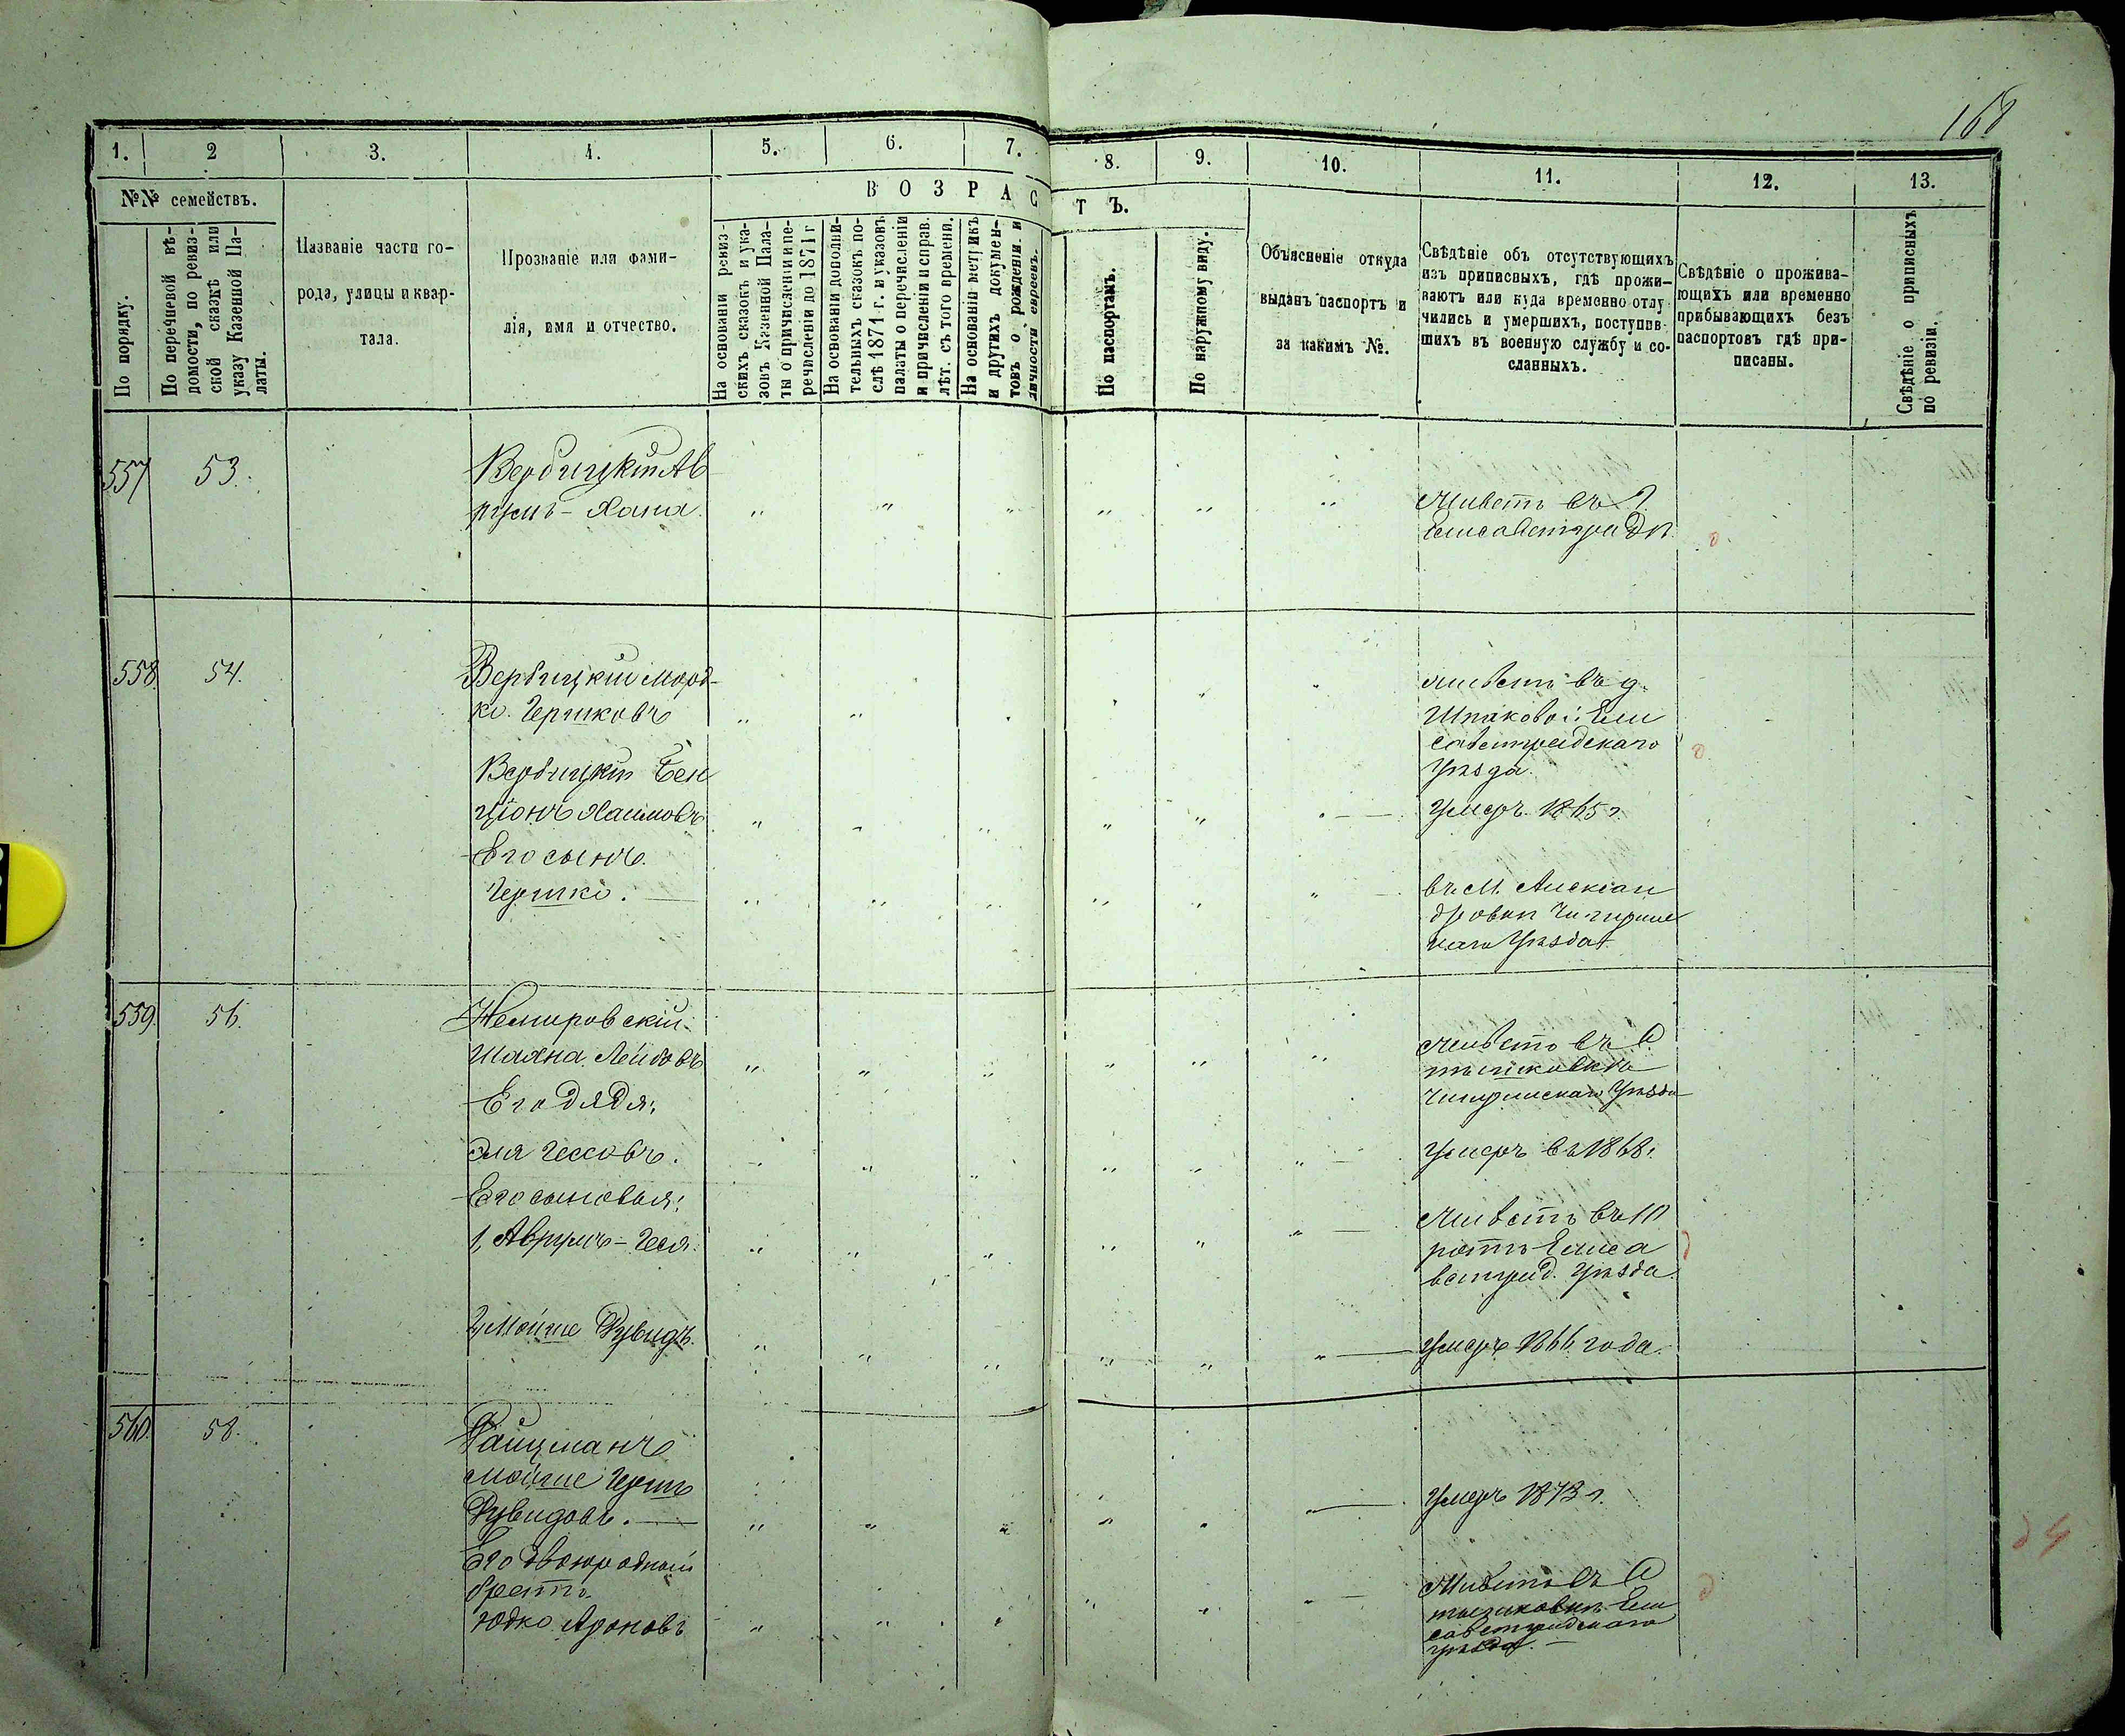 168
1. 2 3. 4. 5. 6. 7. 8. 9. 10. 11. 12. 13.
№№ семействъ.
В О З Р А С Т Ъ.
По порядку.
По перечневой вѣ-
домости, по ревиз-
ской сказкѣ или
указу Казенной Па-
латы.
Названіе части го-
рода, улицы и квар-
тала.
Прозваніе или фами-
лія, имя и отчество.
На основаніи ревиз-
скихъ сказокъ и ука-
зовъ Казенной Пала-
ты о причисленіи и пе-
речисленіи до 1871 г
На основаніи дополни-
тельныхъ сказокъ по-
слѣ 1871 г. и указовъ
палаты о перечисленіи
и причисленіи и справ.
лѣт. съ того времени.
На основаніи метрикъ
и другихъ докумен-
товъ о рожденіи и
личности евреевъ.
По паспортамъ.
По наружному виду.
Объясненіе откуда
выданъ паспортъ и
за какимъ №.
Свѣдѣніе объ отсутствующихъ
изъ приписныхъ, гдѣ прожи-
ваютъ или куда временно отлу
чились и умершихъ, поступив-
шихъ въ военную службу и со-
сланныхъ.
Свѣдѣніе о прожива-
ющихъ или временно
прибывающихъ безъ
паспортовъ гдѣ при-
писаны.
Свѣдѣніе о приписныхъ
по ревизіи.
557 53.
Вербицкій Ав
румъ - Хаима.
Живетъ въ г.
Елисаветградѣ.
558. 54.
Вербицкій Морд-
ко Гершковъ
Живетъ въ д.
Шпаковой Ели
саветградскаго
уѣзда.
Вербицкій Бен
ціонъ Хаимовъ
умеръ 1865 г.
Его сынъ.
Гершко.
въ м. Алексан
дровкѣ Чигирин
скаго уѣзда
559. 56.
Немировскій
Шаяна Лейбовъ
Живетъ въ С
Чигиринскаго уѣзда
Его дядя:
Эля Гессовъ.
умеръ въ 1868 г.
Его сыновья:
1, Аврумъ - Геся.
Живетъ въ
Елиса
ветград. уѣзда.
2, Мойше Дувидъ.
умеръ 1866 года.
560. 58.
Файцманъ
Мойше Гершъ
Дувидовъ.
умеръ 1873 г.
Его двоюродный
братъ.
Юдко Ароновъ
Живетъ въ С
Ели
саветградскаго
уѣзда.